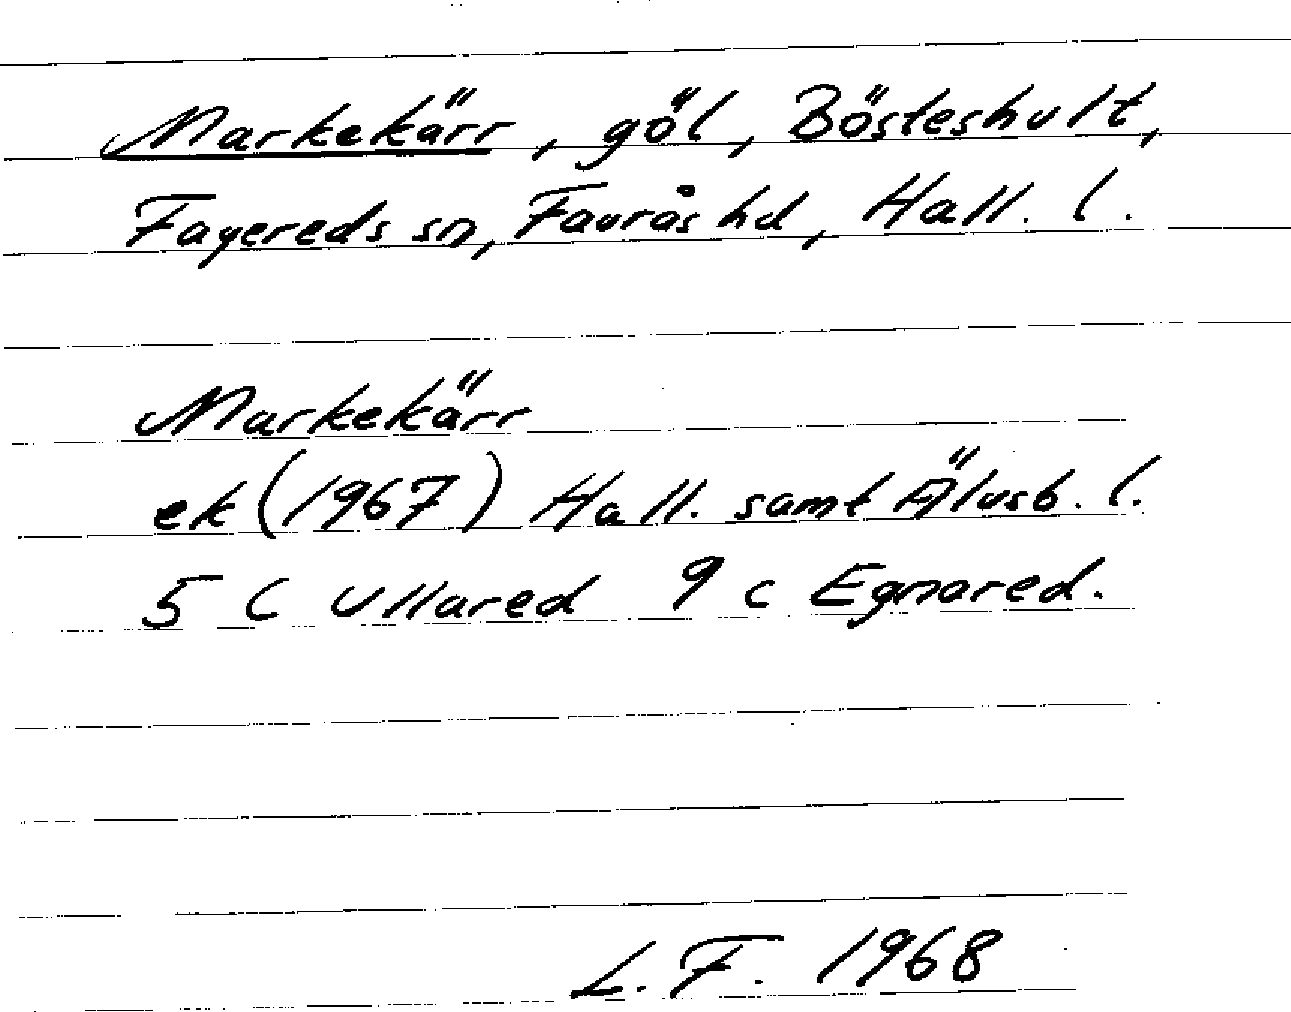 Markekärr, göl, Bösteshult,
Fagereds sn, Faurås hd, Hall. l.
Markekärr
ek (1967) Hall. samt Älvsb. l.
5 C Ullared 9 c Egnared.
L. F. 1968